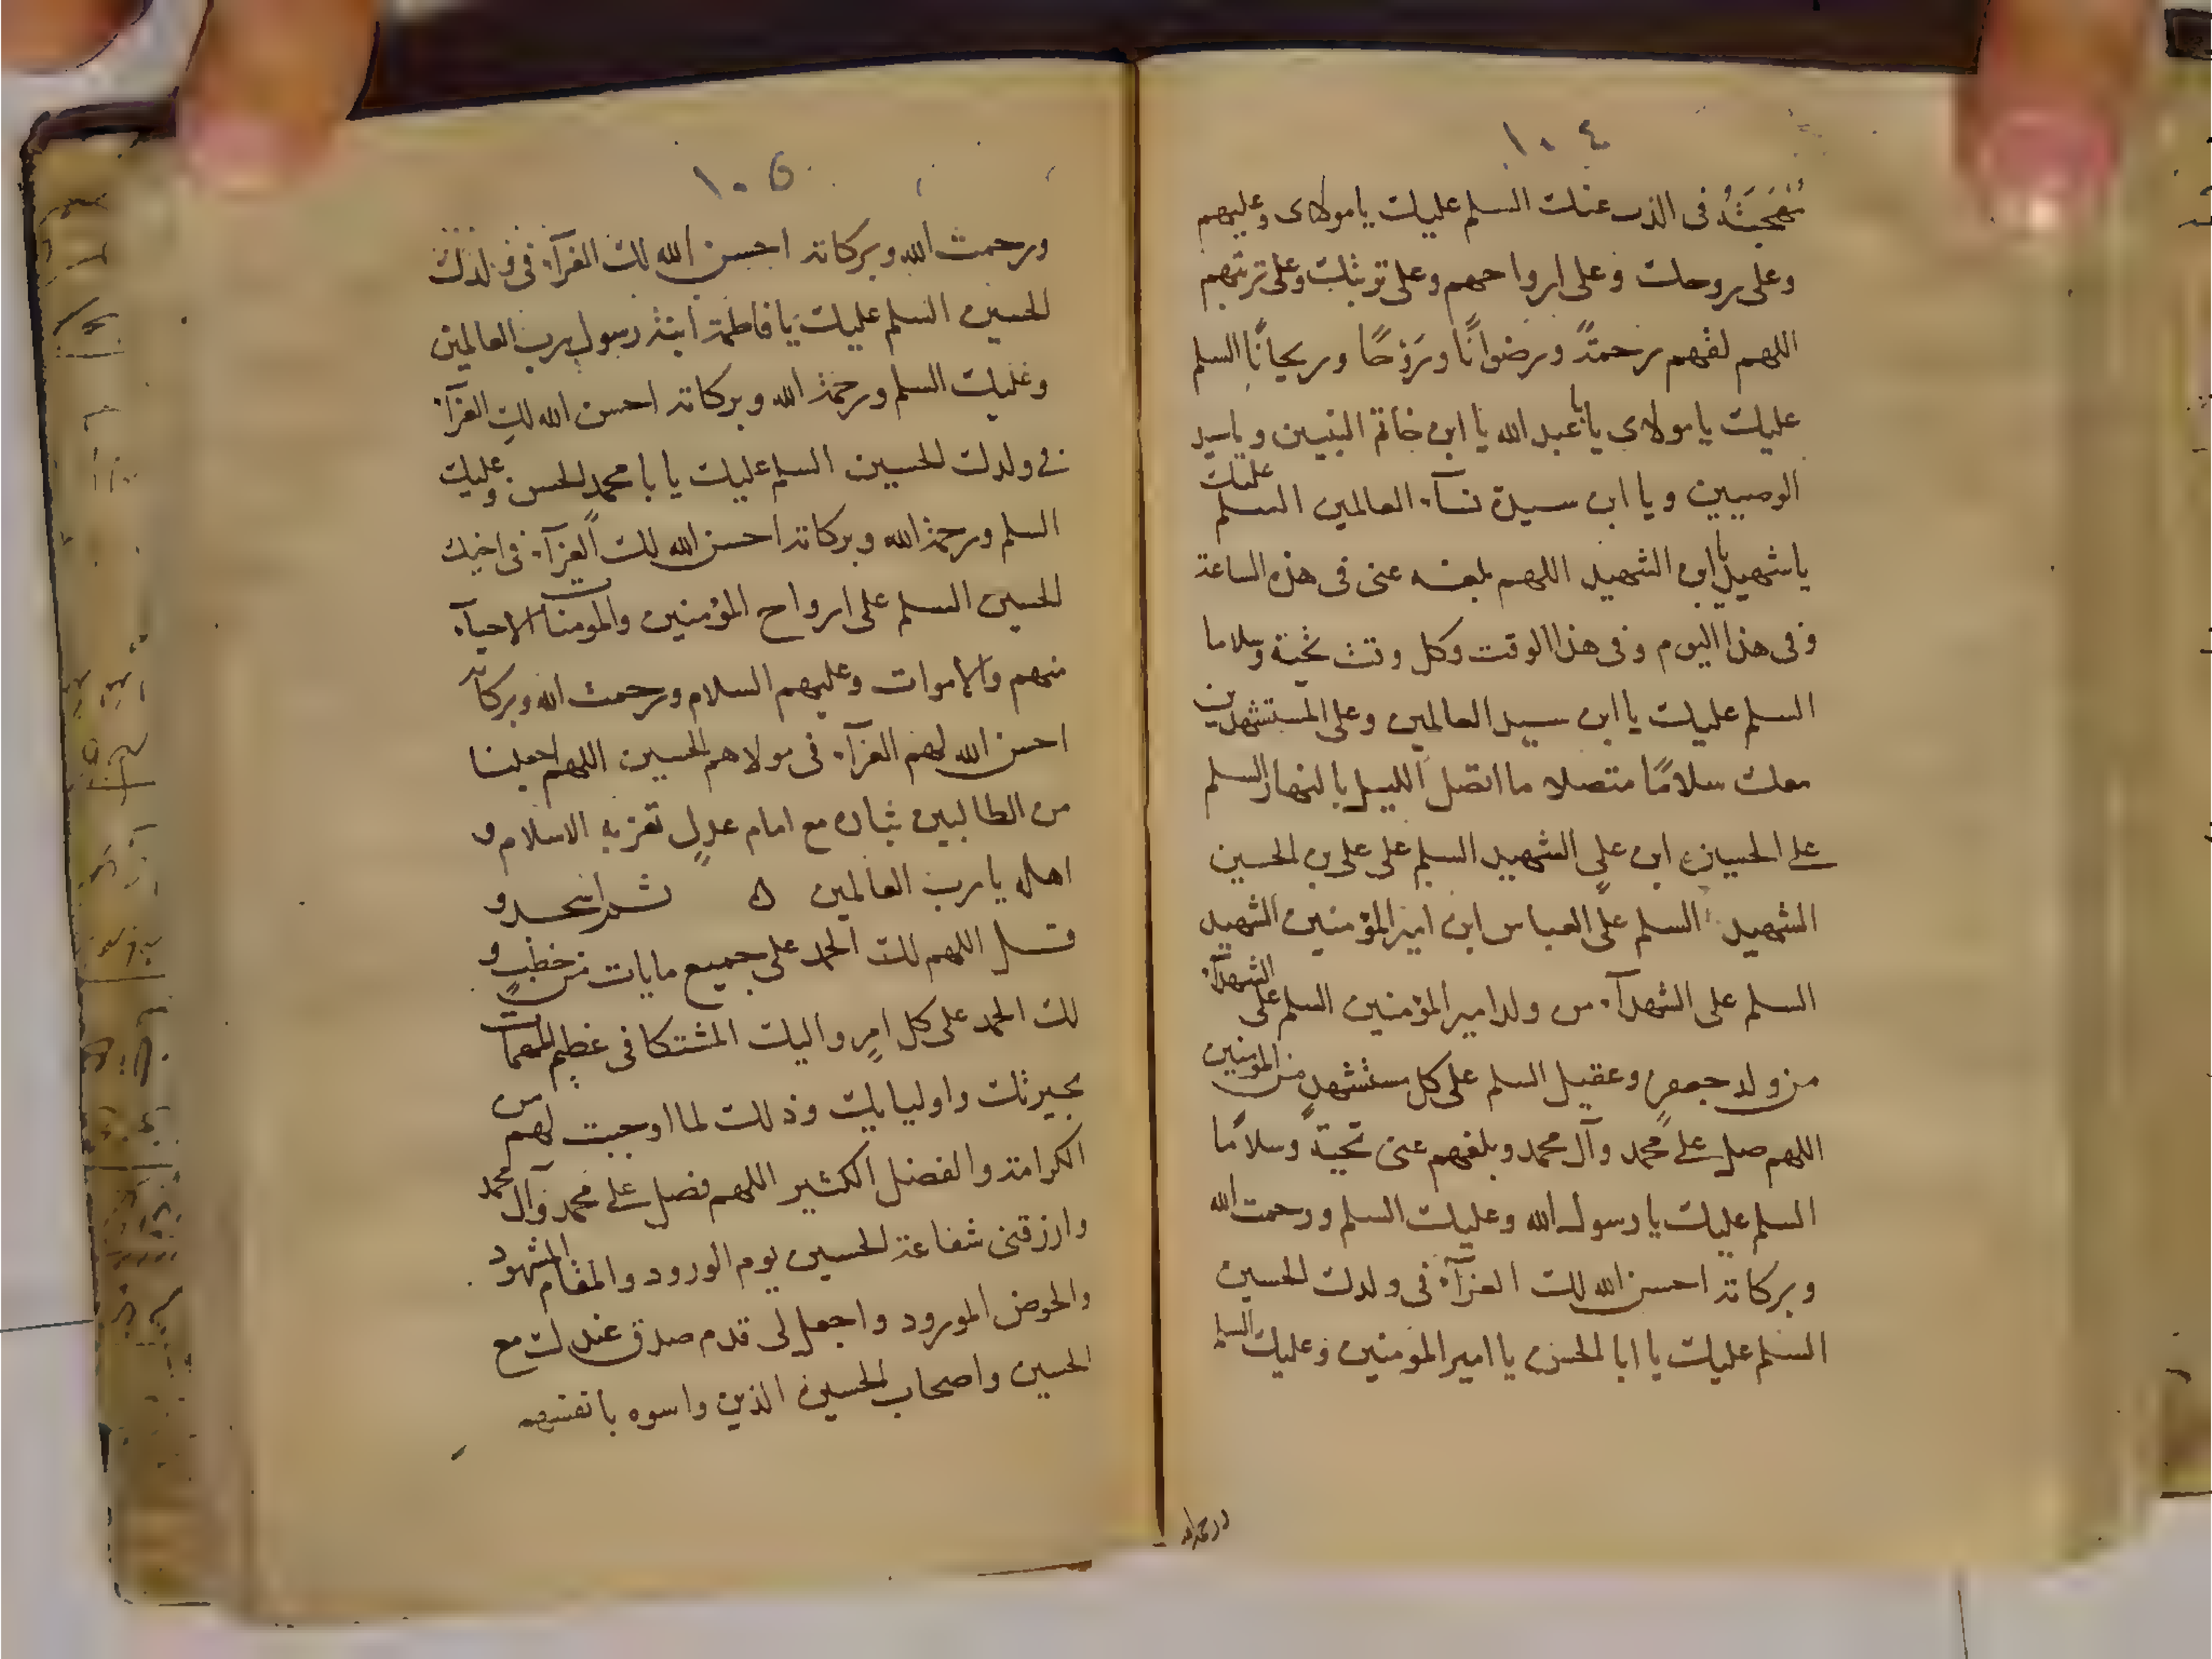 ١٠٤
مُهجَتَهُ فى الذب عنك السلم عليك يا مولاى وعليهم
وعلى روحك وعلى ارواحهم وعلى تربتك وعلى تربتهم
اللهم لقهم رحمتً ورضوانًا ورَوْحًا وريحانًا السلم
عليك يا مولاى يا با عبد الله يا ابن خاتم النبيين ويا سيد
الوصيين ويا ابن سيدة نسآء العالمين السلم عليك
يا شهيد يا ابن الشهيد اللهم بلغه عنى فى هذه الساعة
وفى هذا اليوم وفى هذا الوقت وكل وقت تحية وسلاما
السلم عليك يا ابن سيد العالمين وعلى المستشهدين
معك سلامًا متصلا ما اتصل الليل بالنهار السلم
على الحسين ابن على الشهيد السلم على على بن الحسين
الشهيد السلم على العباس ابن امير المؤمنين الشهيد
السلم على الشهدآء من ولد امير المؤمنين السلم على الشهدآء
من ولد جعفر وعقيل السلم على كل مستشهدٍ من المؤمنين
اللهم صل على محمد وآل محمد وبلغهم عنى تحيةً وسلامًا
السلم عليك يا رسول الله وعليك السلم ورحمت الله
وبركاته احسن الله لك العزآء فى ولدك الحسين
السلم عليك يا ابا الحسن يا امير المؤمنين وعليك السلم
ورحمة الله
١٠٥
ورحمت الله وبركاته احسن الله لك العزآء فى ولدك
الحسين السلم عليك يا فاطمة ابنة رسول رب العالمين
وعليك السلم ورحمة الله وبركاته احسن الله لكِ العزآء
فى ولدك الحسين السلم عليك يا با محمدٍ الحسن وعليك
السلم ورحمة الله وبركاته احسن الله لك العزآء فى اخيك
الحسين السلم على ارواح المؤمنين والمومنات الاحيآء
منهم والاموات وعليهم السلام ورحمت الله وبركاته
احسن الله لهم العزآء فى مولاهم الحسين اللهم اجعلنا
من الطالبين بثاره مع امام عدلٍ تعز به الاسلام و
اهله يا رب العالمين ه ثم اسجد و
قل اللهم لك الحمد على جميع ما يات من خطبٍ و
لك الحمد على كل امرٍ واليك المشتكا فى عظيم المهمات
بخيرتك واوليايك وذلك لما اوجبت لهم من
الكرامة والفضل الكثير اللهم فصل على محمد وآل محمد
وارزقنى شفاعة الحسين يوم الورود والمقام المشهود
والحوض المورود واجعل لى قدم صدق عندك مع
الحسين واصحاب الحسين الذين واسوه بانفسهم